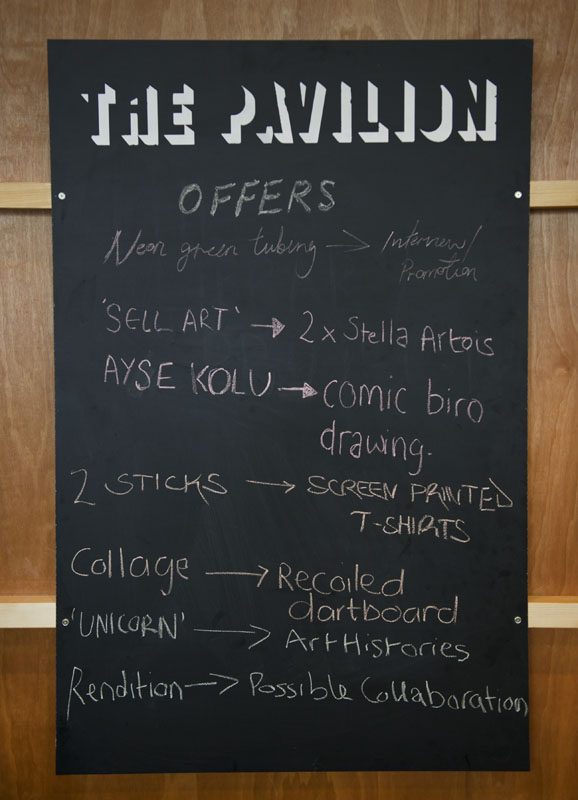 THE PAVILION
OFFERS
Neon green tubing → Interview/
Promotion
'SELL ART' → 2 x Stella Artois
AYSE KOLU → comic biro
drawing.
2 STICKS → SCREEN PRINTED
T-SHIRTS
Collage → Recoiled
dartboard
'UNICORN' → Art Histories
Rendition → Possible Collaboration